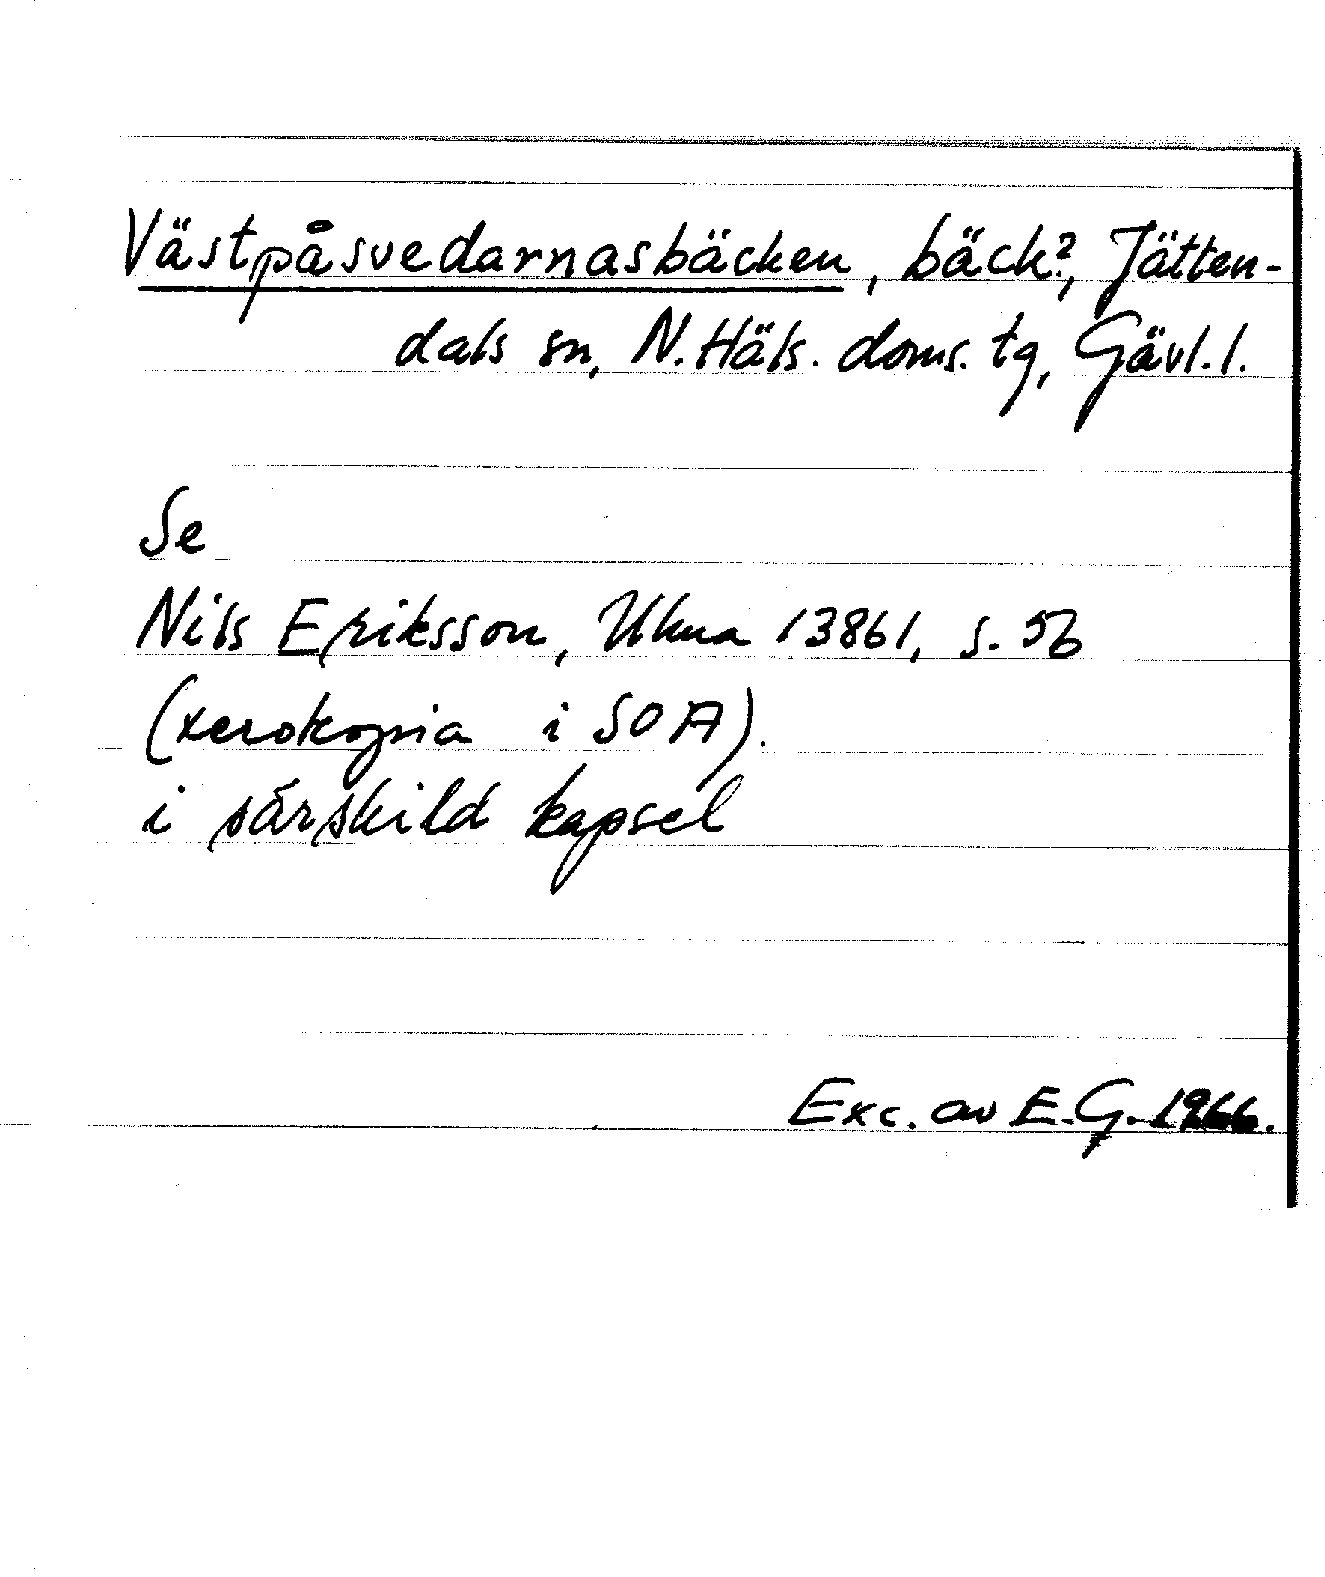 Västpåsvedarnasbäcken, bäck?, Jätten-
dals sn, N. Häls. doms. tg, Gävl. l.
Se
Nils Eriksson, Ulma 13861, s. 56
(xerokopia i SOA).
i särskild kapsel
Exc. av E. G. 1966.